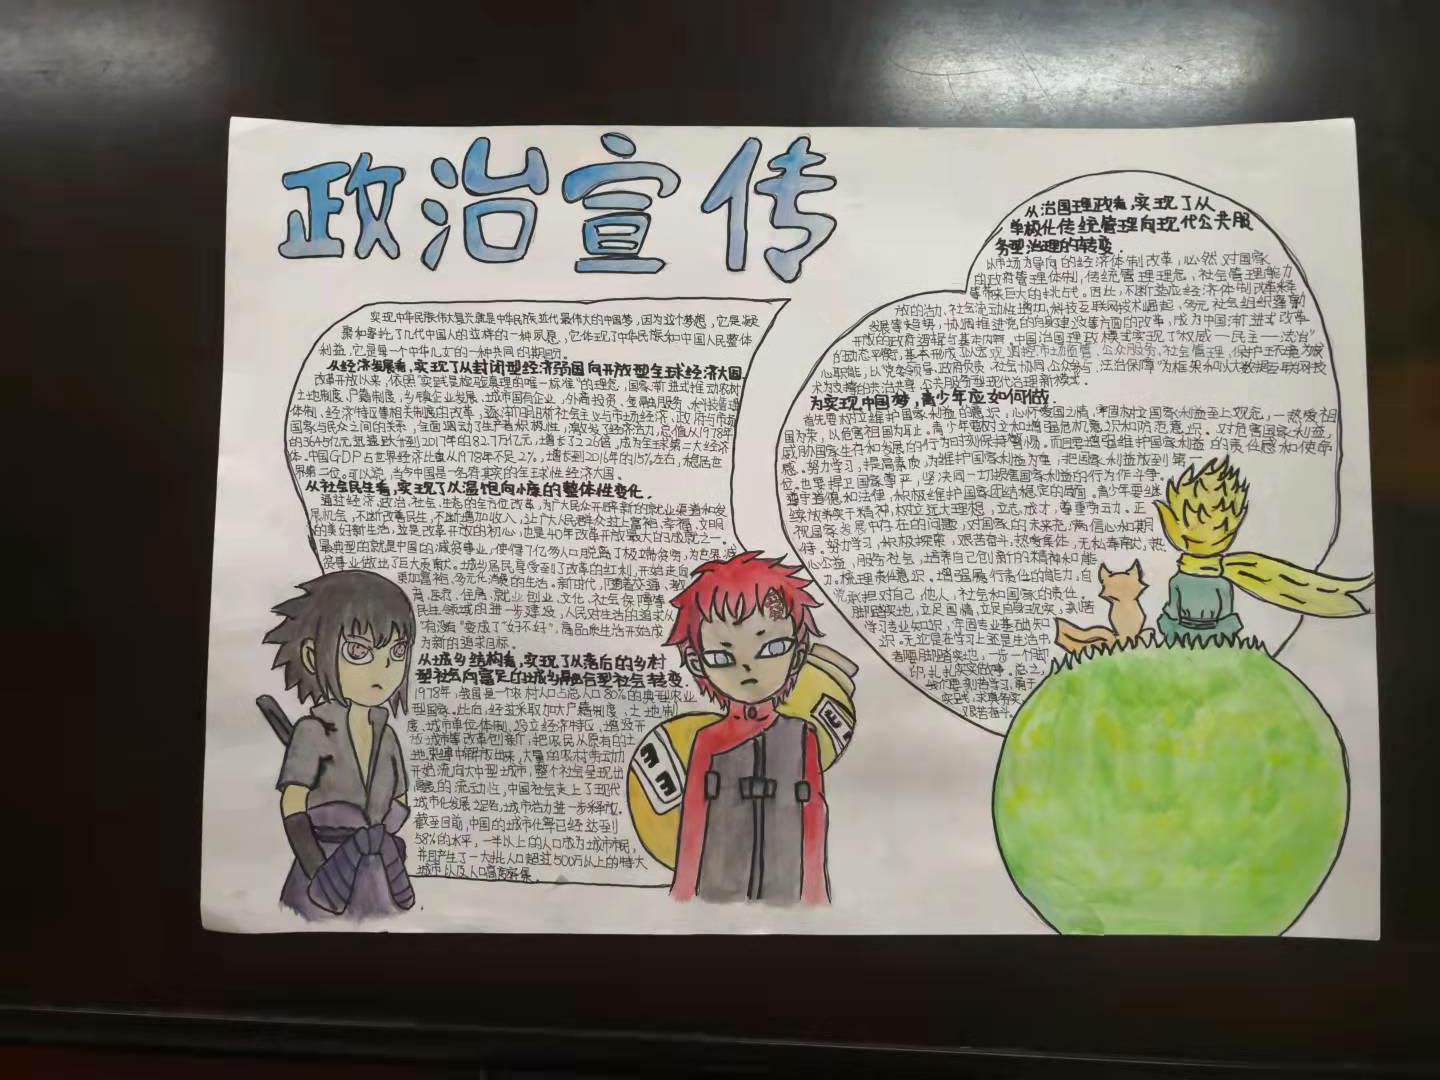 政治宣传
实现中华民族伟大复兴就是中华民族近代最伟大的中国梦,因为这个梦想,它是凝
聚和寄托了几代中国人的这样的一种夙愿,它体现了中华民族和中国人民整体
利益,它是每一个中华儿女的一种共同的期盼。
从经济发展看,实现了从封闭型经济弱国向开放型全球经济大国.
改革开放以来,依照"实践是检验真理的唯一标准"的理念,国家渐进式推动农村
土地制度、户籍制度,乡镇企业发展、城市国有企业,外商投资、金融服务、水科技管理
体制、经济特区等相关制度的改革,逐渐加明晰社会主义与市场经济,政府与市场
国家与民众之间的关系,全面调动了生产者积极性,激发了经济活力,总值从1978年
的3645亿元迅速跃升到2017年的82.7万亿元,增长了226倍,成为全球第二大经济
体。中国GDP占世界经济比重从1978年不足2%,增长到2016年的15%左右,稳居世
界第二位。可以说,当今中国是一名府其实的全球性经济大国。
从社会民生看,实现了从温饱向小康的整体性变化.
通过经济、政治、社会、生态的全方位改革,为广大民众开辟新的就业渠道和发
展机会,不断改善民生,不断增加收入,让广大人民群众过上富裕、幸福、文明
的美好新生活,这是改革开放的初心,也是40年改革开放最大的成就之一。
最典型的就是中国的减贫事业,使得7亿多人口脱离了极端贫穷,为世界减
贫事业做出了巨大贡献。城乡居民享受到了改革的红利,开始走向
更加富裕,多元化消费的生活。新时代,随着交通、教
育、医疗、住房、就业创业、文化、社会保障等
民生领域的进一步建设,人民对生活的追求从
"有没有"变成了"好不好",高品质生活开始成
为新的追求目标。
从城乡结构看,实现了从落后的乡村
型社会向富足的城乡融合型社会转变.
1978年,我国是一个农村人口占总人口80%的典型农业
型国家。此后,经过采取加大户籍制度、土地制
度、城市单位体制、设立经济特区、增设开
放城市等改革创新,把农民从原有的土
地束缚中解放出来,大量的农村劳动力
开始流向大中型城市,整个社会呈现出
高度的流动性,中国社会走上了现代
城市化发展之路,城市活力进一步释放。
截至目前,中国的城市化率已经达到
58%的水平,一半以上的人口成为城市市民,
并且产生了一大批人口超过500万以上的特大
城市以及人口高密群集。
从治国理政看,实现了从
单极化传统管理向现代公共服
务型治理的转变.
以市场为导向的经济体制改革,必然对国家
的政府管理体制,传统管理理念,社会管理能力
等带来巨大的挑战。因此,不断适应经济体制改革释
放的活力、社会流动性增加、科技互联网技术崛起、多元社会组织蓬勃
发展等趋势,协调推进党的自身建设等方面的改革,成为中国渐进式改革
开放的政府逻辑与基本内容。中国治国理政模式实现了"权威—民主—法治"
的动态平衡,基本形成以宏观调控市场监管、公众服务,社会管理,保护环境为核
心职能,以"党委领导、政府负责、社会协同、公众参与、法治保障"为框架和以大数据互联网技
术为支撑的共治共享、公共服务型现代治理新模式.
为实现中国梦,青少年应如何做.
首先要树立维护国家利益的意识,心怀爱国之情,牢固树立国家利益至上观念,一热爱祖
国为荣,以危害祖国为耻。青少年要树立和增强危机意识和防范意识。对危害国家利益,
威胁国家生存和发展的行为时刻保持警惕。而且要增强维护国家利益的责任感和使命
感。努力学习,提高素质,为维护国家利益为重,把国家利益放到第一
位。也要捍卫国家尊严,坚决同一切损害国家利益的行为作斗争。
遵守道德和法律,积极维护国家团结稳定的局面。青少年要继
续放务实干精神,树立远大理想,立志成才,尊重劳动力。正
视国家发展中存在的问题,对国家的未来充满信心和期
待。努力学习,积极探索,艰苦奋斗,热爱集体,无私奉献,热
心公益,服务社会,培养自己创新的精神和能
力。梳理责任意识。增强履行责任的能力,自
觉承担对自己,他人,社会和国家的责任。
脚踏实地,立足国情,立足自身现实,刻苦
学习专业知识,牢固专业基础知
识。无论是在学习上还是生活中,
者随脚踏实地,一步一个脚
印,扎扎实实做事。总之,
我们要刻苦学习,勇于
实践,求真务实,
艰苦奋斗。